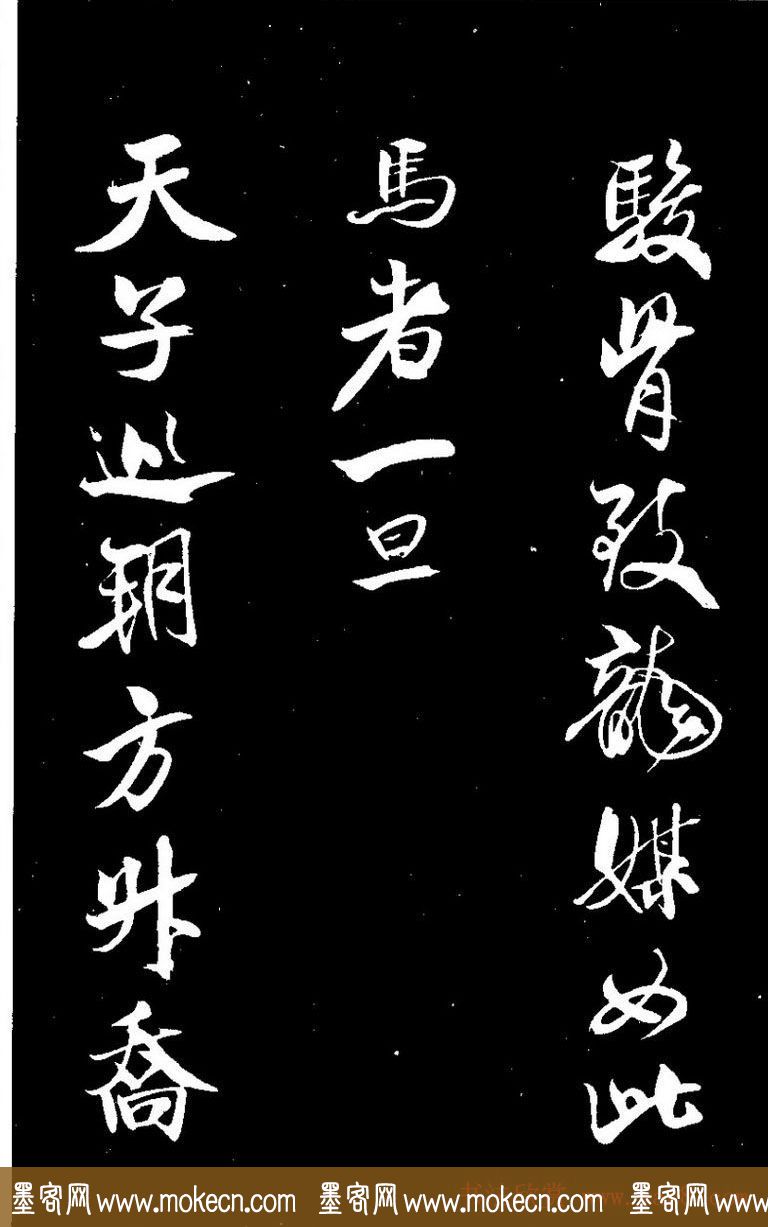 駿骨致龍媒如此
馬者一旦
天子巡朔方升喬
墨客网 www.mokecn.com 墨客网 www.mokecn.com 墨客网 www